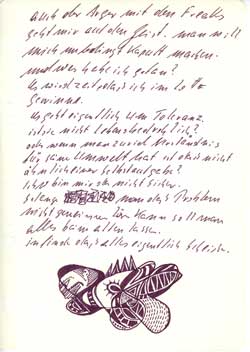 auch der Ärger mit den Freaks
geht mir auf den Geist. man will
mich unbedingt kaputt machen.
und wer habe ich getan?
Es wird zeit, daß ich im Lotto
gewinne.
Es geht eigentlich um Toleranz.
ist sie nicht lebensbedrohlich?
oder wenn man zuviel Verständnis
für seine Umwelt hat ist das nicht
ähnlich einer Selbstaufgabe?
ich bin mir da nicht sicher.
Solange man das Problem
nicht gemeinsam lösen kann soll man
alles beim alten lassen.
ich finde das alles eigentlich Scheisse.